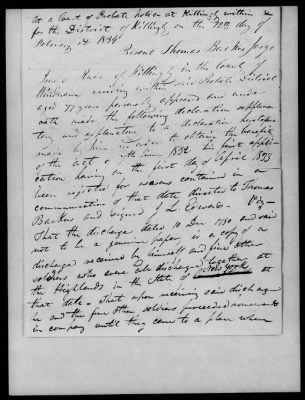 At a Court of Probate holden at Killingly within and
for the District of Killingly on the 12th day of
February AD 1834
Present Thomas Backus Judge
of Killingly in the County of
Windham residing within said Probate District
aged 77 years personally appeared and under
oath made the following declaration supplemen
tary and explanatory to a declaration heretofore
made by him in order to obtain the benefit
of the act of 7th June 1832 his first appli
cation having on the first day of April 1833
been rejected for reasons contained in a
communication of that date directed to Thomas
Backus and signed J L Edwards - Viz -
That the discharge dated 10 Dec 1780 and said
not to be a genuine paper, is a copy of a
discharge received by himself and five other
soldiers who were all discharged together at
the Highlands in the State of New York at
that date - That upon receiving said discharge
he and the five other soldiers proceeded homewards
in company until they came to a place where